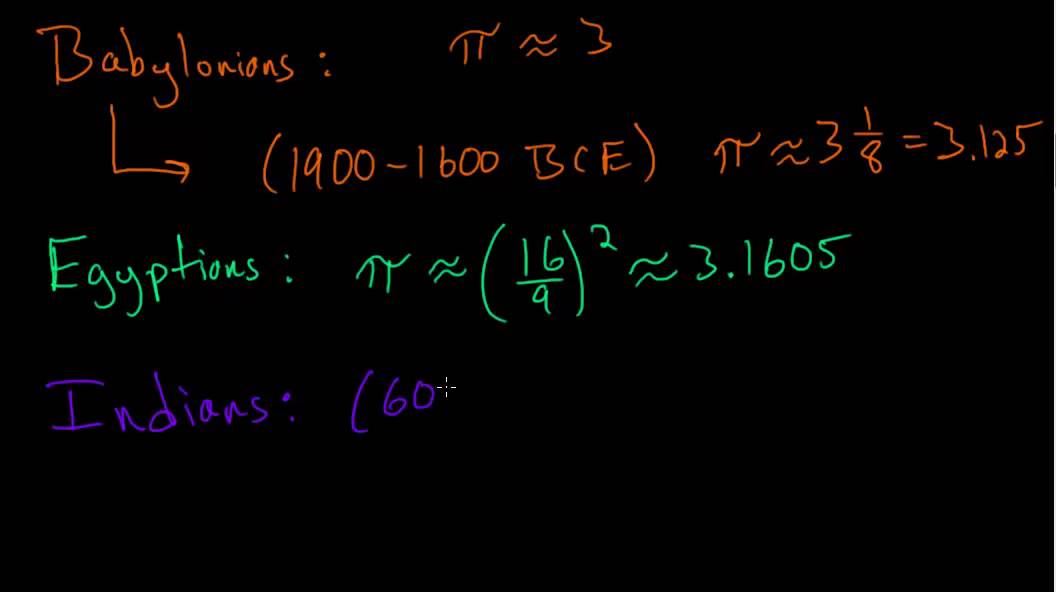 Babylonians: π ≈ 3
(1900-1600 BCE) π ≈ 3 1/8 = 3.125
Egyptions: π ≈ (16/9)² ≈ 3.1605
Indians: (60